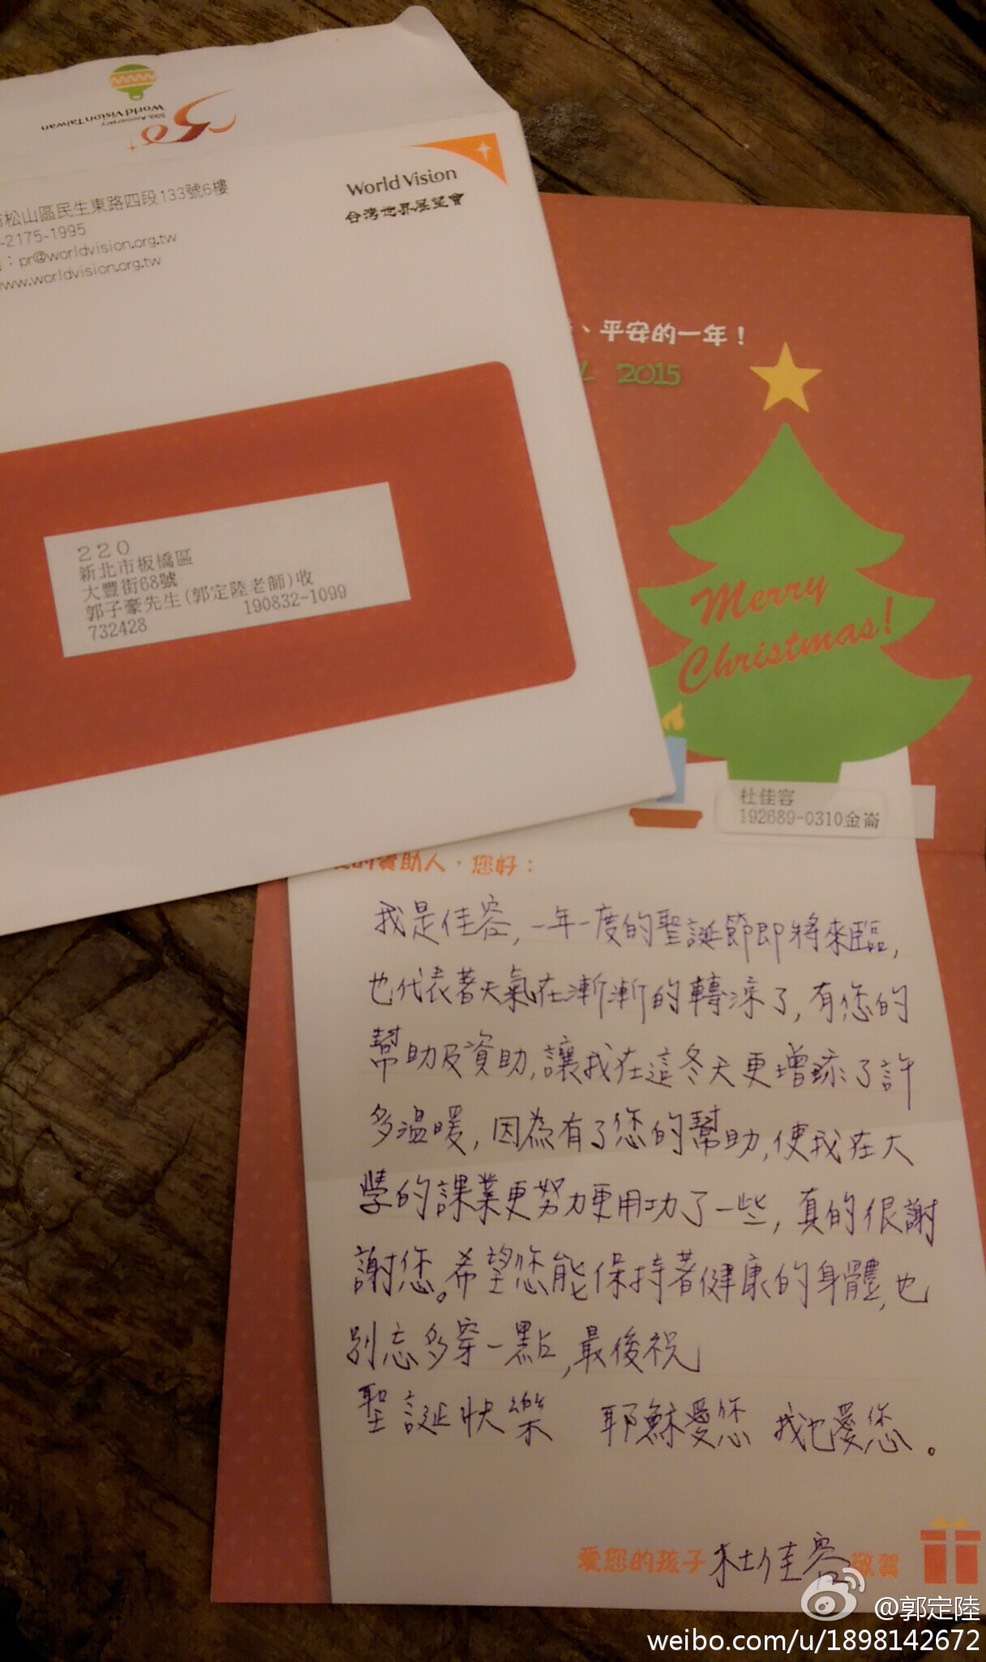 50th Anniversary
World Vision Taiwan
World Vision
台灣世界展望會
松山區民生東路四段133號6樓
-2175-1995
：pr@worldvision.org.tw
www.worldvision.org.tw
220
新北市板橋區
大豐街68號
郭子豪先生(郭定陸老師)收
732428 190832-1099
、平安的一年！
2015
Merry
Christmas!
杜佳容
192689-0310金崙
的資助人，您好：
我是佳容,一年一度的聖誕節即將來臨,
也代表著天氣在漸漸的轉涼了,有您的
幫助及資助,讓我在這冬天更增添了許
多溫暖,因為有了您的幫助,使我在大
學的課業更努力更用功了一些,真的很謝
謝您。希望您能保持著健康的身體,也
別忘多穿一點,最後祝
聖誕快樂 耶穌愛您 我也愛您。
愛您的孩子 杜佳容 敬賀
@郭定陸
weibo.com/u/1898142672